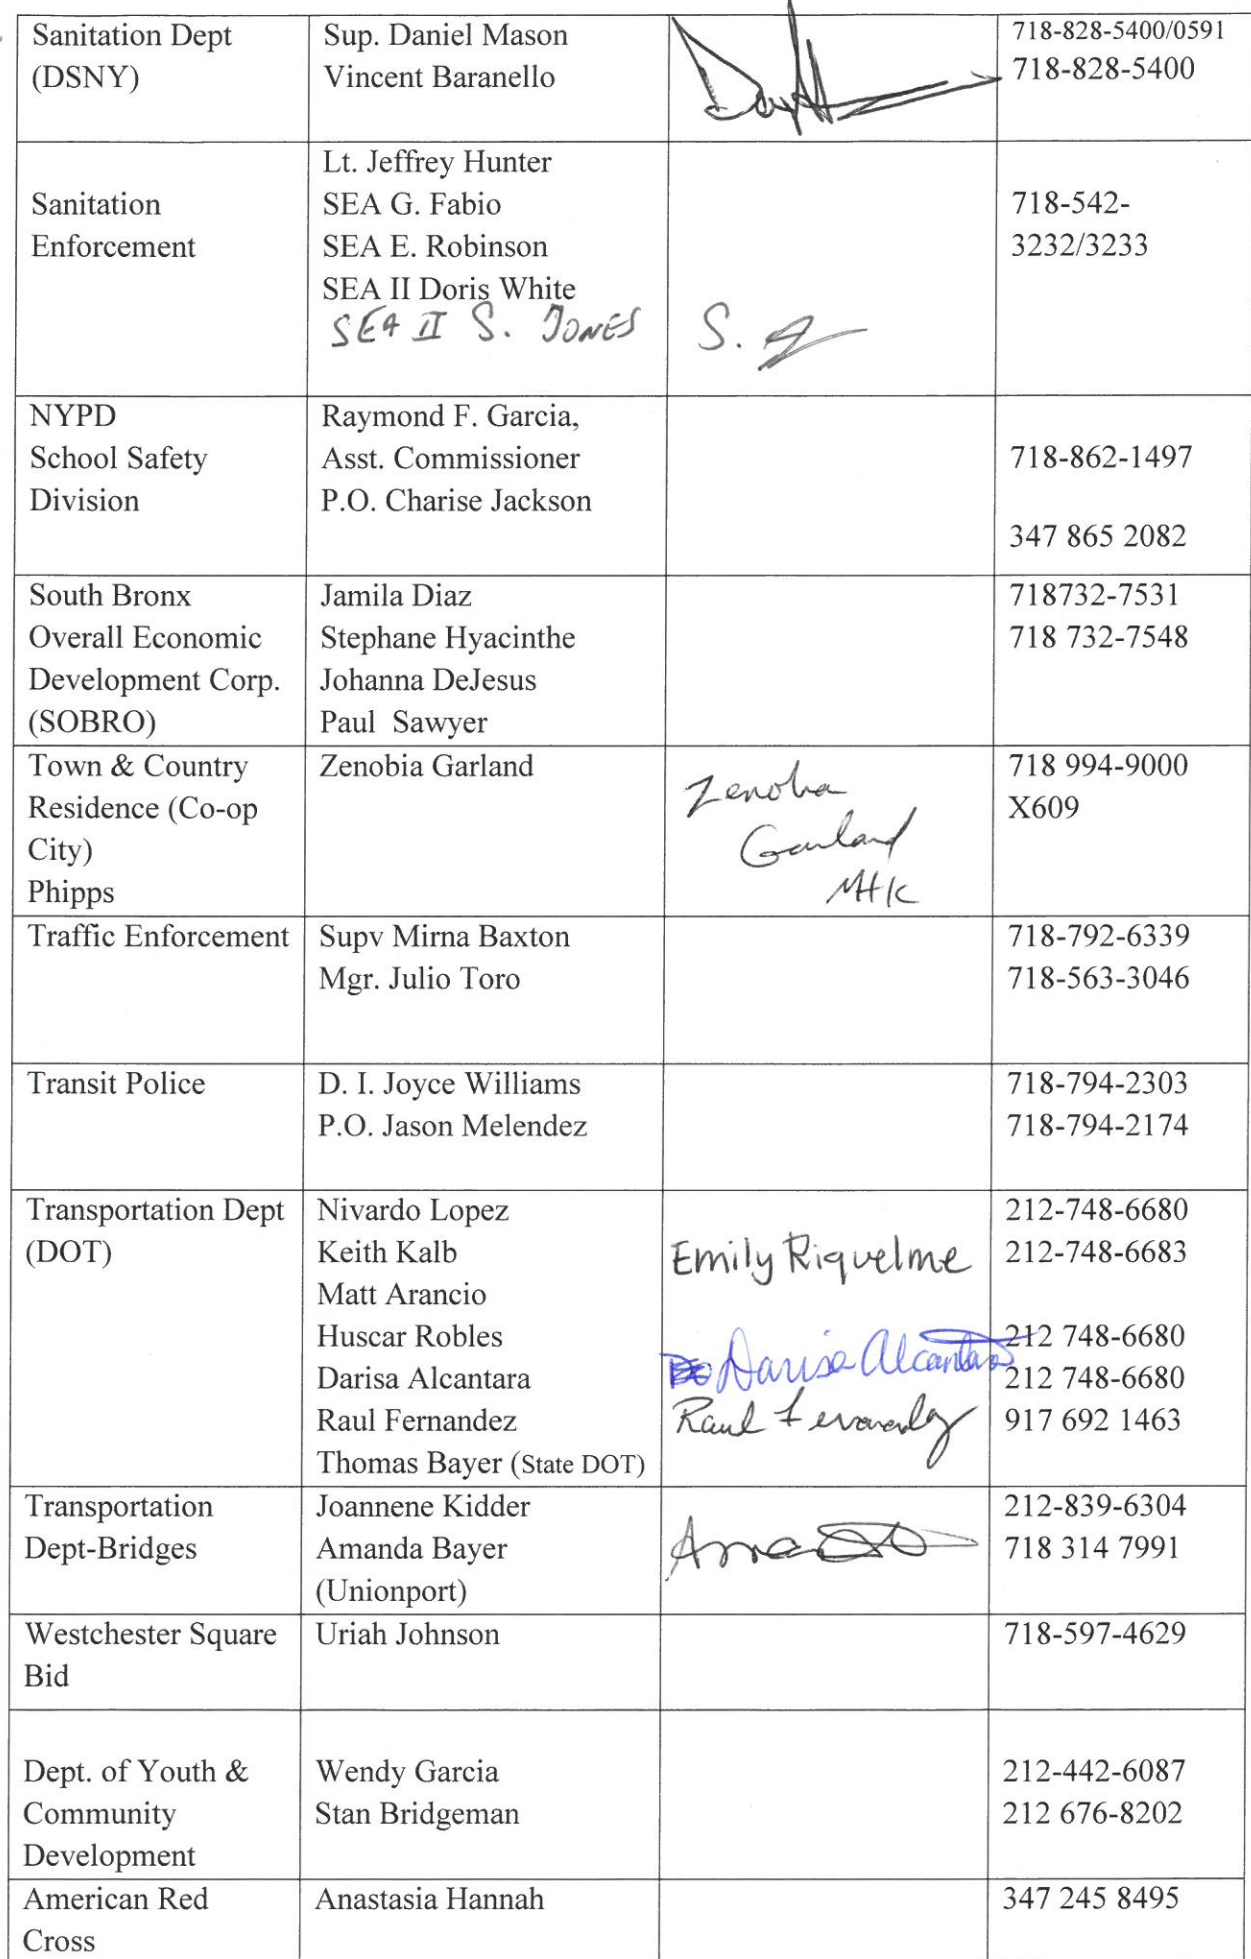 Sanitation Dept
(DSNY)
Sup. Daniel Mason
Vincent Baranello
718-828-5400/0591
718-828-5400
Sanitation
Enforcement
Lt. Jeffrey Hunter
SEA G. Fabio
SEA E. Robinson
SEA II Doris White
SEA II S. JONES
S.
718-542-
3232/3233
NYPD
School Safety
Division
Raymond F. Garcia,
Asst. Commissioner
P.O. Charise Jackson
718-862-1497
347 865 2082
South Bronx
Overall Economic
Development Corp.
(SOBRO)
Jamila Diaz
Stephane Hyacinthe
Johanna DeJesus
Paul Sawyer
718732-7531
718 732-7548
Town & Country
Residence (Co-op
City)
Phipps
Zenobia Garland
Zenobia
Garland
MHK
718 994-9000
X609
Traffic Enforcement
Supv Mirna Baxton
Mgr. Julio Toro
718-792-6339
718-563-3046
Transit Police
D. I. Joyce Williams
P.O. Jason Melendez
718-794-2303
718-794-2174
Transportation Dept
(DOT)
Nivardo Lopez
Keith Kalb
Matt Arancio
Huscar Robles
Darisa Alcantara
Raul Fernandez
Thomas Bayer (State DOT)
Emily Riquelme
Darisa Alcantara
Raul Fernandez
212-748-6680
212-748-6683
212 748-6680
212 748-6680
917 692 1463
Transportation
Dept-Bridges
Joannene Kidder
Amanda Bayer
(Unionport)
212-839-6304
718 314 7991
Westchester Square
Bid
Uriah Johnson
718-597-4629
Dept. of Youth &
Community
Development
Wendy Garcia
Stan Bridgeman
212-442-6087
212 676-8202
American Red
Cross
Anastasia Hannah
347 245 8495